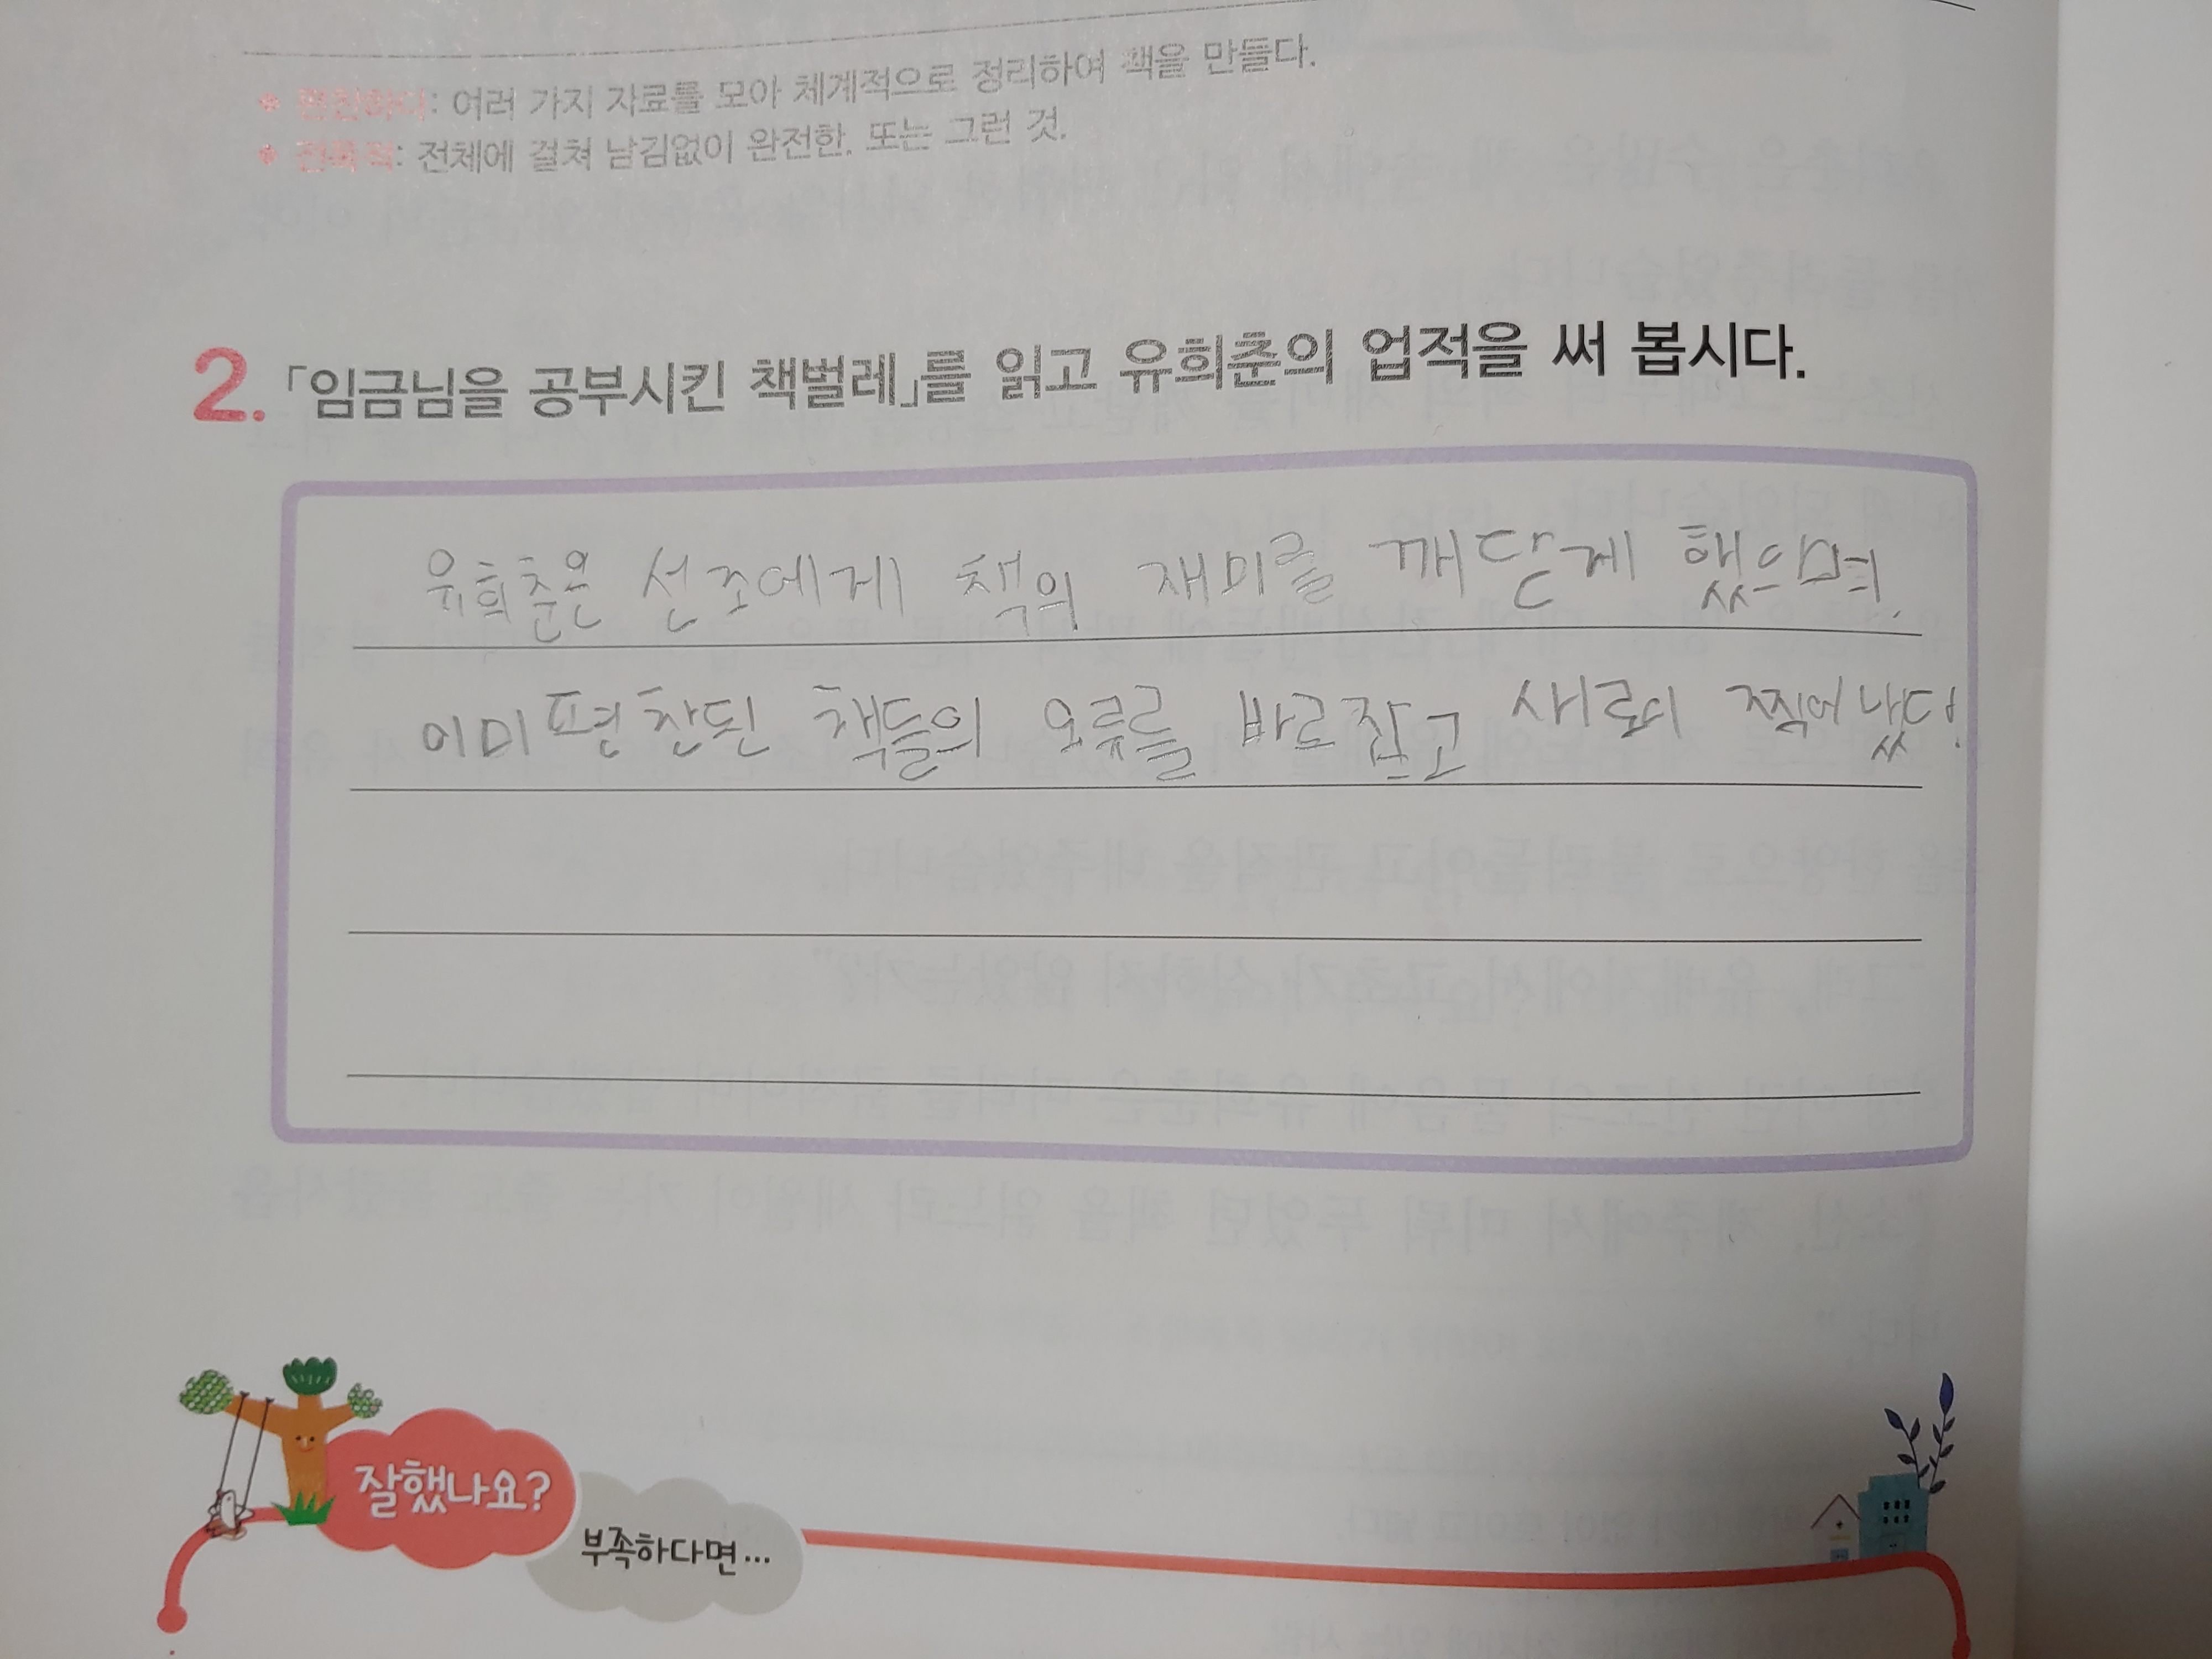 * 편찬하다: 여러 가지 자료를 모아 체계적으로 정리하여 책을 만들다.
* 전폭적: 전체에 걸쳐 남김없이 완전한. 또는 그런 것.
2. 「임금님을 공부시킨 책벌레」를 읽고 유희춘의 업적을 써 봅시다.
유희춘은 선조에게 책의 재미를 깨닫게 했으며,
이미 편찬된 책들의 오류를 바로잡고 새로이 찍어냈다.
잘했나요?
부족하다면...